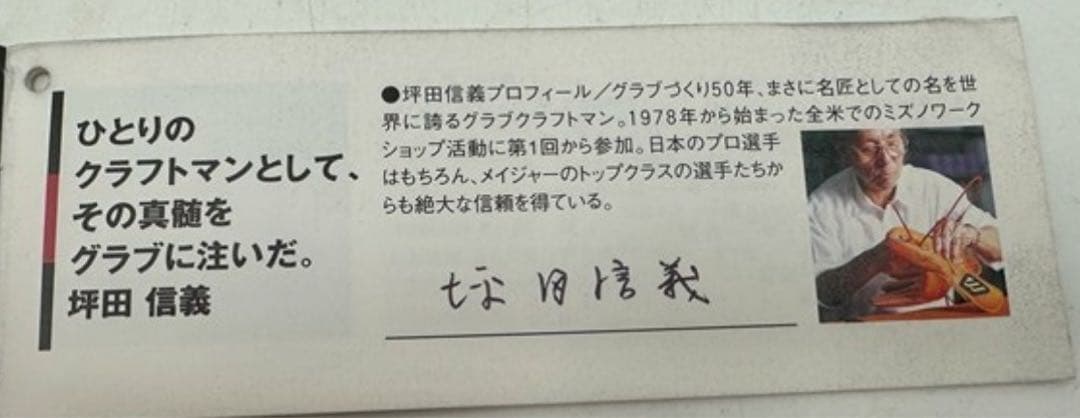 ひとりの
クラフトマンとして、
その真髄を
グラブに注いだ。
坪田 信義
●坪田信義プロフィール／グラブづくり50年、まさに名匠としての名を世
界に誇るグラブクラフトマン。1978年から始まった全米でのミズノワーク
ショップ活動に第1回から参加。日本のプロ選手
はもちろん、メイジャーのトップクラスの選手たちか
らも絶大な信頼を得ている。
坪田信義